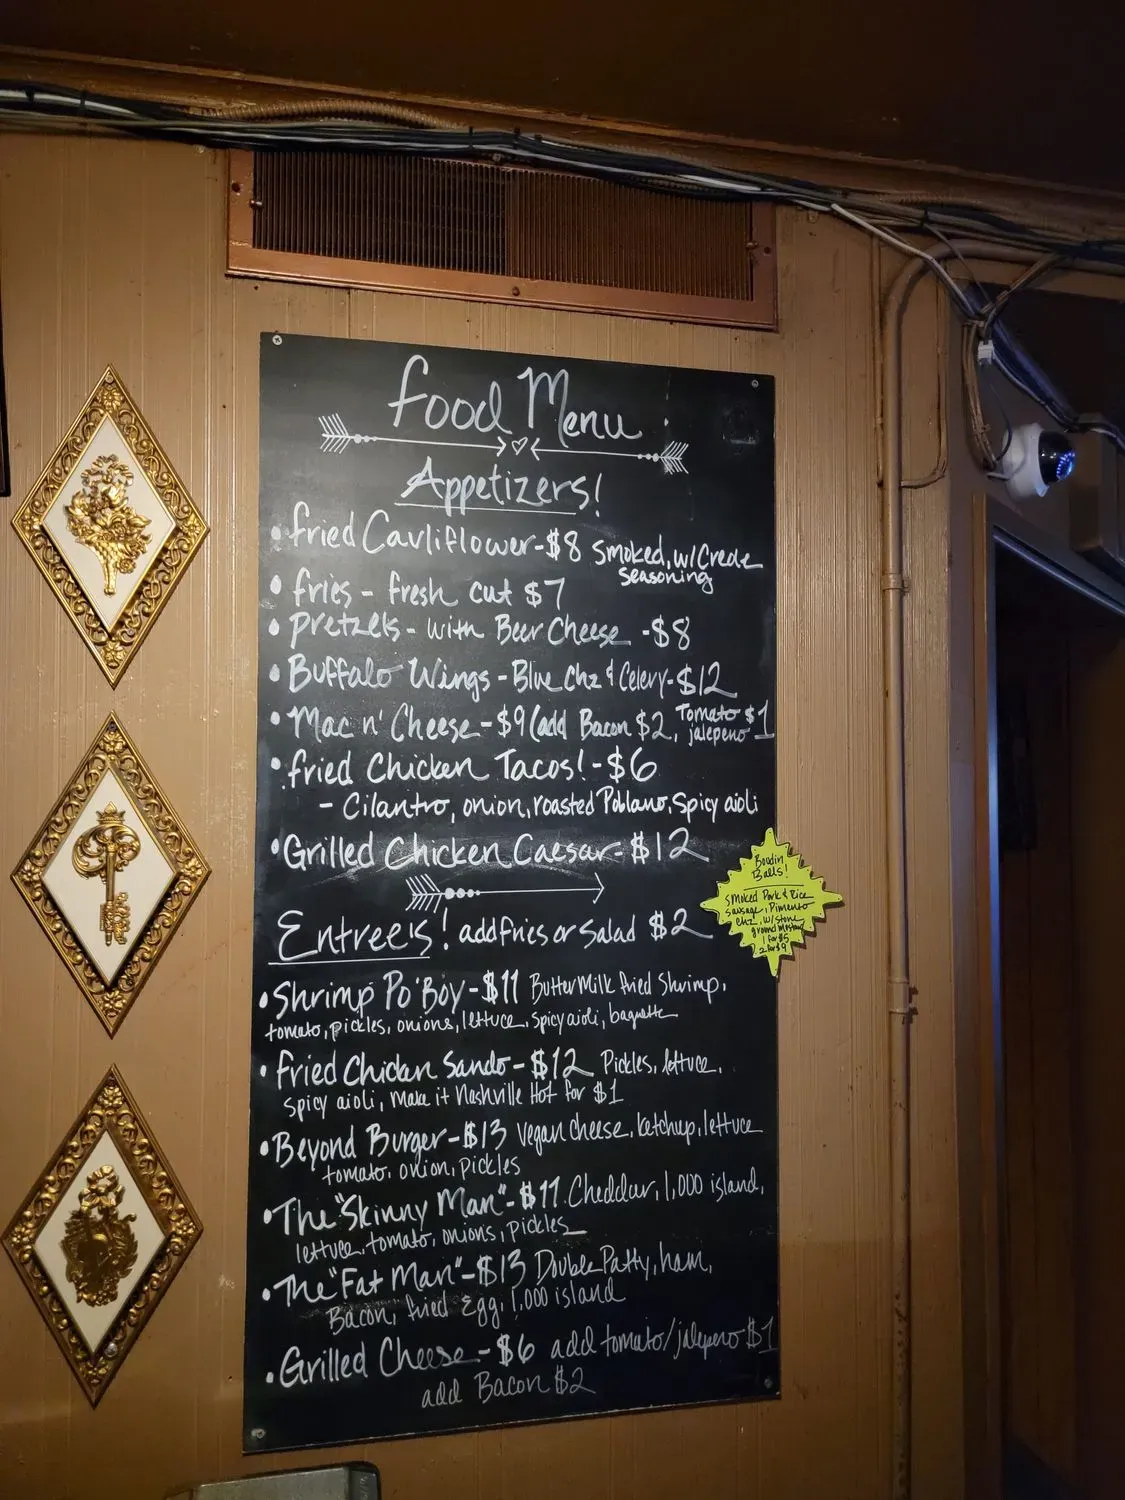 Food Menu
Appetizers!
• Fried Cauliflower - $8 smoked, w/ Creole
seasoning
• Fries - Fresh cut $7
• Pretzels - with Beer Cheese - $8
• Buffalo Wings - Blue Chz & Celery - $12
• Mac n' Cheese - $9 (add Bacon $2, Tomato $1
jalepeno
• Fried Chicken Tacos! - $6
- Cilantro, onion, roasted Poblano, Spicy aioli
• Grilled Chicken Caesar - $12
Entree's! add fries or Salad $2
• Shrimp Po'Boy - $11 ButterMilk fried Shrimp,
tomato, pickles, onions, lettuce, spicy aioli, baguette
• Fried Chicken Sando - $12 Pickles, lettuce,
spicy aioli, make it Nashville Hot for $1
• Beyond Burger - $13 Vegan cheese, ketchup, lettuce
tomato, onion, pickles
• The "Skinny Man" - $11 Cheddar, 1,000 island,
lettuce, tomato, onions, pickles
• The "Fat Man" - $13 Double Patty, ham,
Bacon, fried Egg, 1,000 island
• Grilled Cheese - $6 add tomato/jalepeno $1
add Bacon $2
Boudin
Balls!
Smoked Pork & Rice
Sausage, Pimento
chz, w/ stone
ground mustard
1 for $5
2 for $9